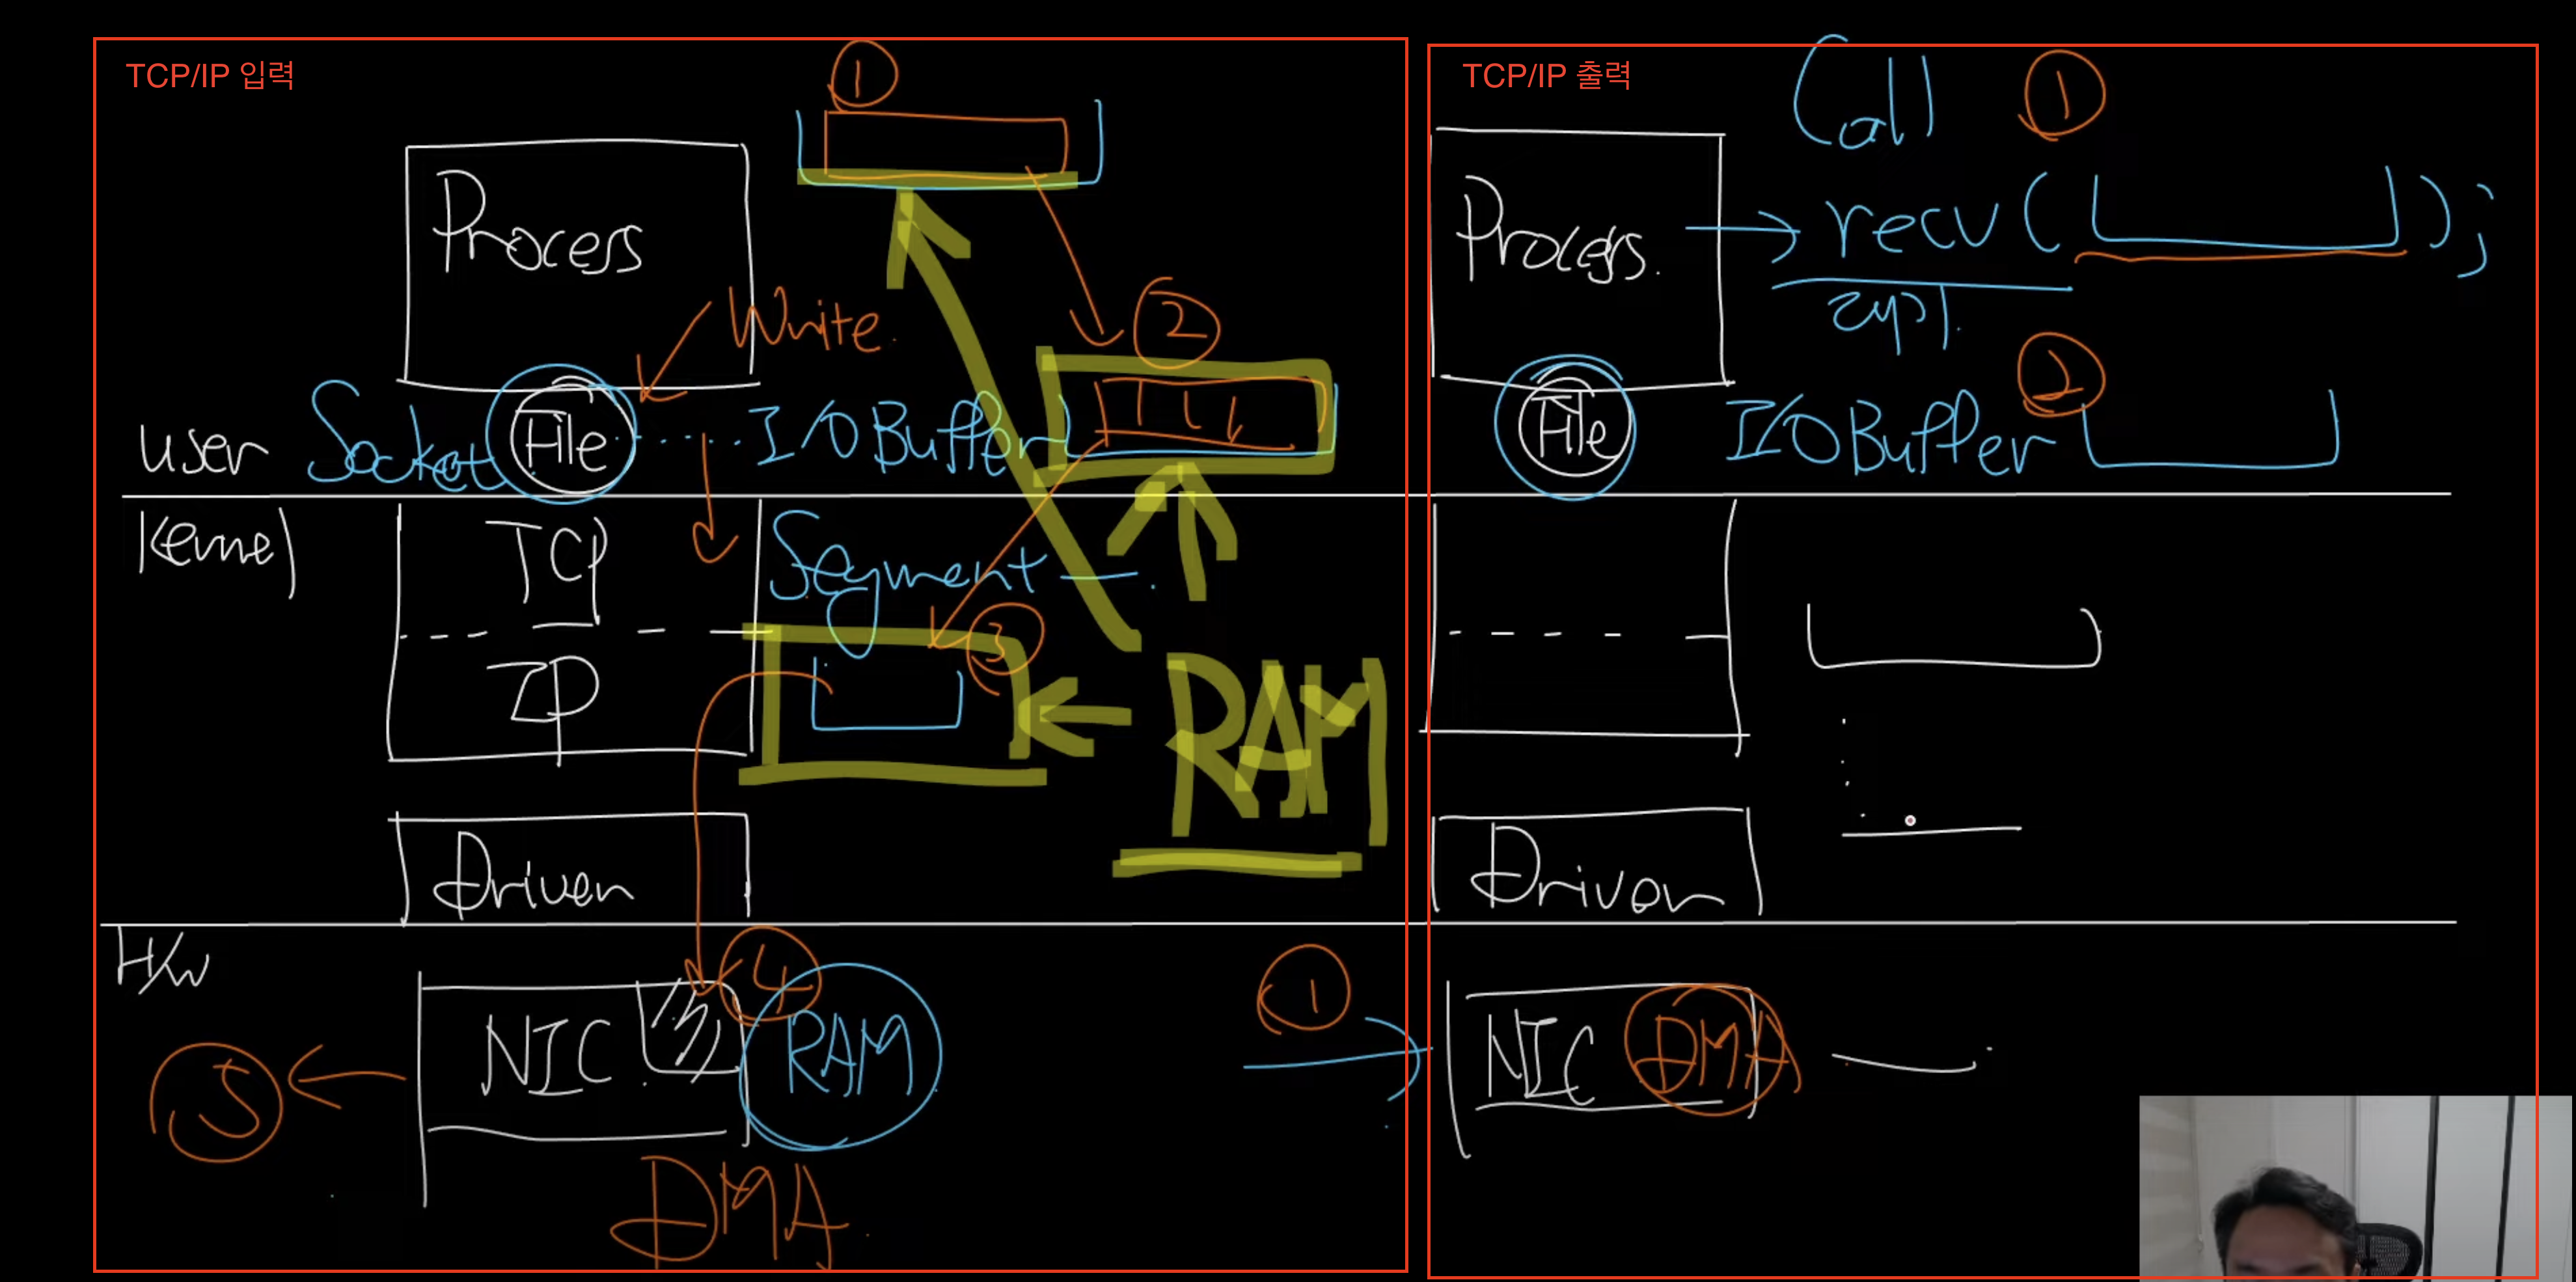 TCP/IP 입력
①
Process
Write.
②
User Socket File I/O Buffer
Kernel
TCP
Segment
IP
③
RAM
Driver
H/W
④
NIC
RAM
⑤
DMA
TCP/IP 출력
Call ①
Process.
recv( );
②
File I/O Buffer
Driver
①
NIC DMA